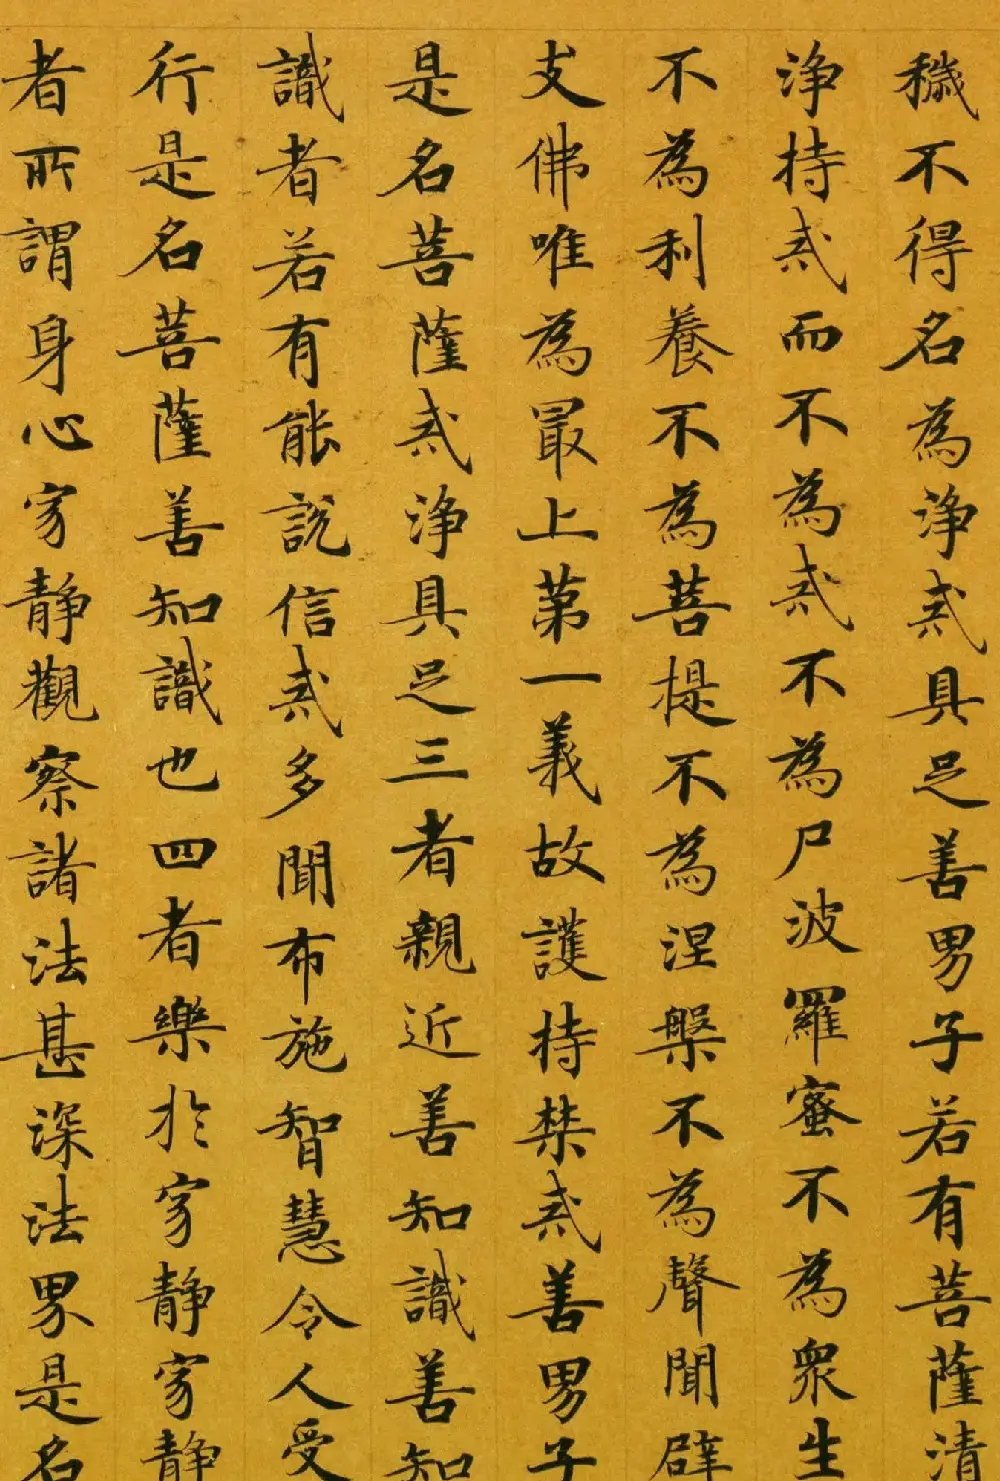 穢不得名為淨戒具足善男子若有菩薩清
淨持戒而不為戒不為尸波羅蜜不為眾生
不為利養不為菩提不為涅槃不為聲聞辟
支佛唯為最上第一義故護持禁戒善男子
是名菩薩戒淨具足三者親近善知識善知
識者若有能說信戒多聞布施智慧令人受
行是名菩薩善知識也四者樂於寂靜寂靜
者所謂身心寂靜觀察諸法甚深法界是名